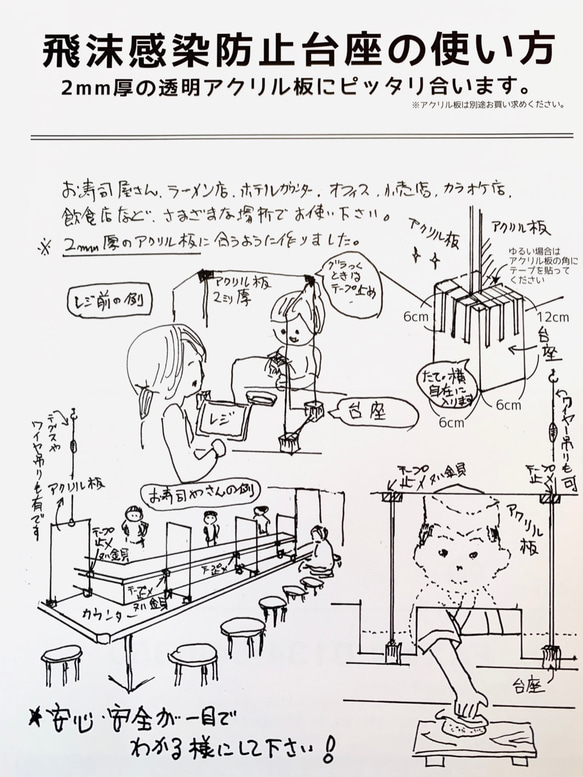 飛沫感染防止台座の使い方
2mm厚の透明アクリル板にピッタリ合います。
※アクリル板は別途お買い求めください。
お寿司屋さん、ラーメン店、ホテルカウンター、オフィス、小売店、カラオケ店、
飲食店など、さまざまな場所でお使い下さい。
※ 2mm厚のアクリル板に合うように作りました。
レジ前の例
アクリル板
2ミリ厚
グラつく
ときは
テープ止め
レジ
台座
アクリル板
アクリル板
ゆるい場合は
アクリル板の角に
テープを貼って
ください
6cm
12cm
台座
たて、横
自在に
入ります
6cm
6cm
テグスや
ワイヤ吊りも有です
アクリル板
お寿司やさんの例
テープ
止メ
テープ止メ
テープ止メ
カウンター
ワイヤー吊りも可
テープ
止メ
テープ
止メ
アクリル
板
台座
*安心・安全が一目で
わかる様にして下さい!